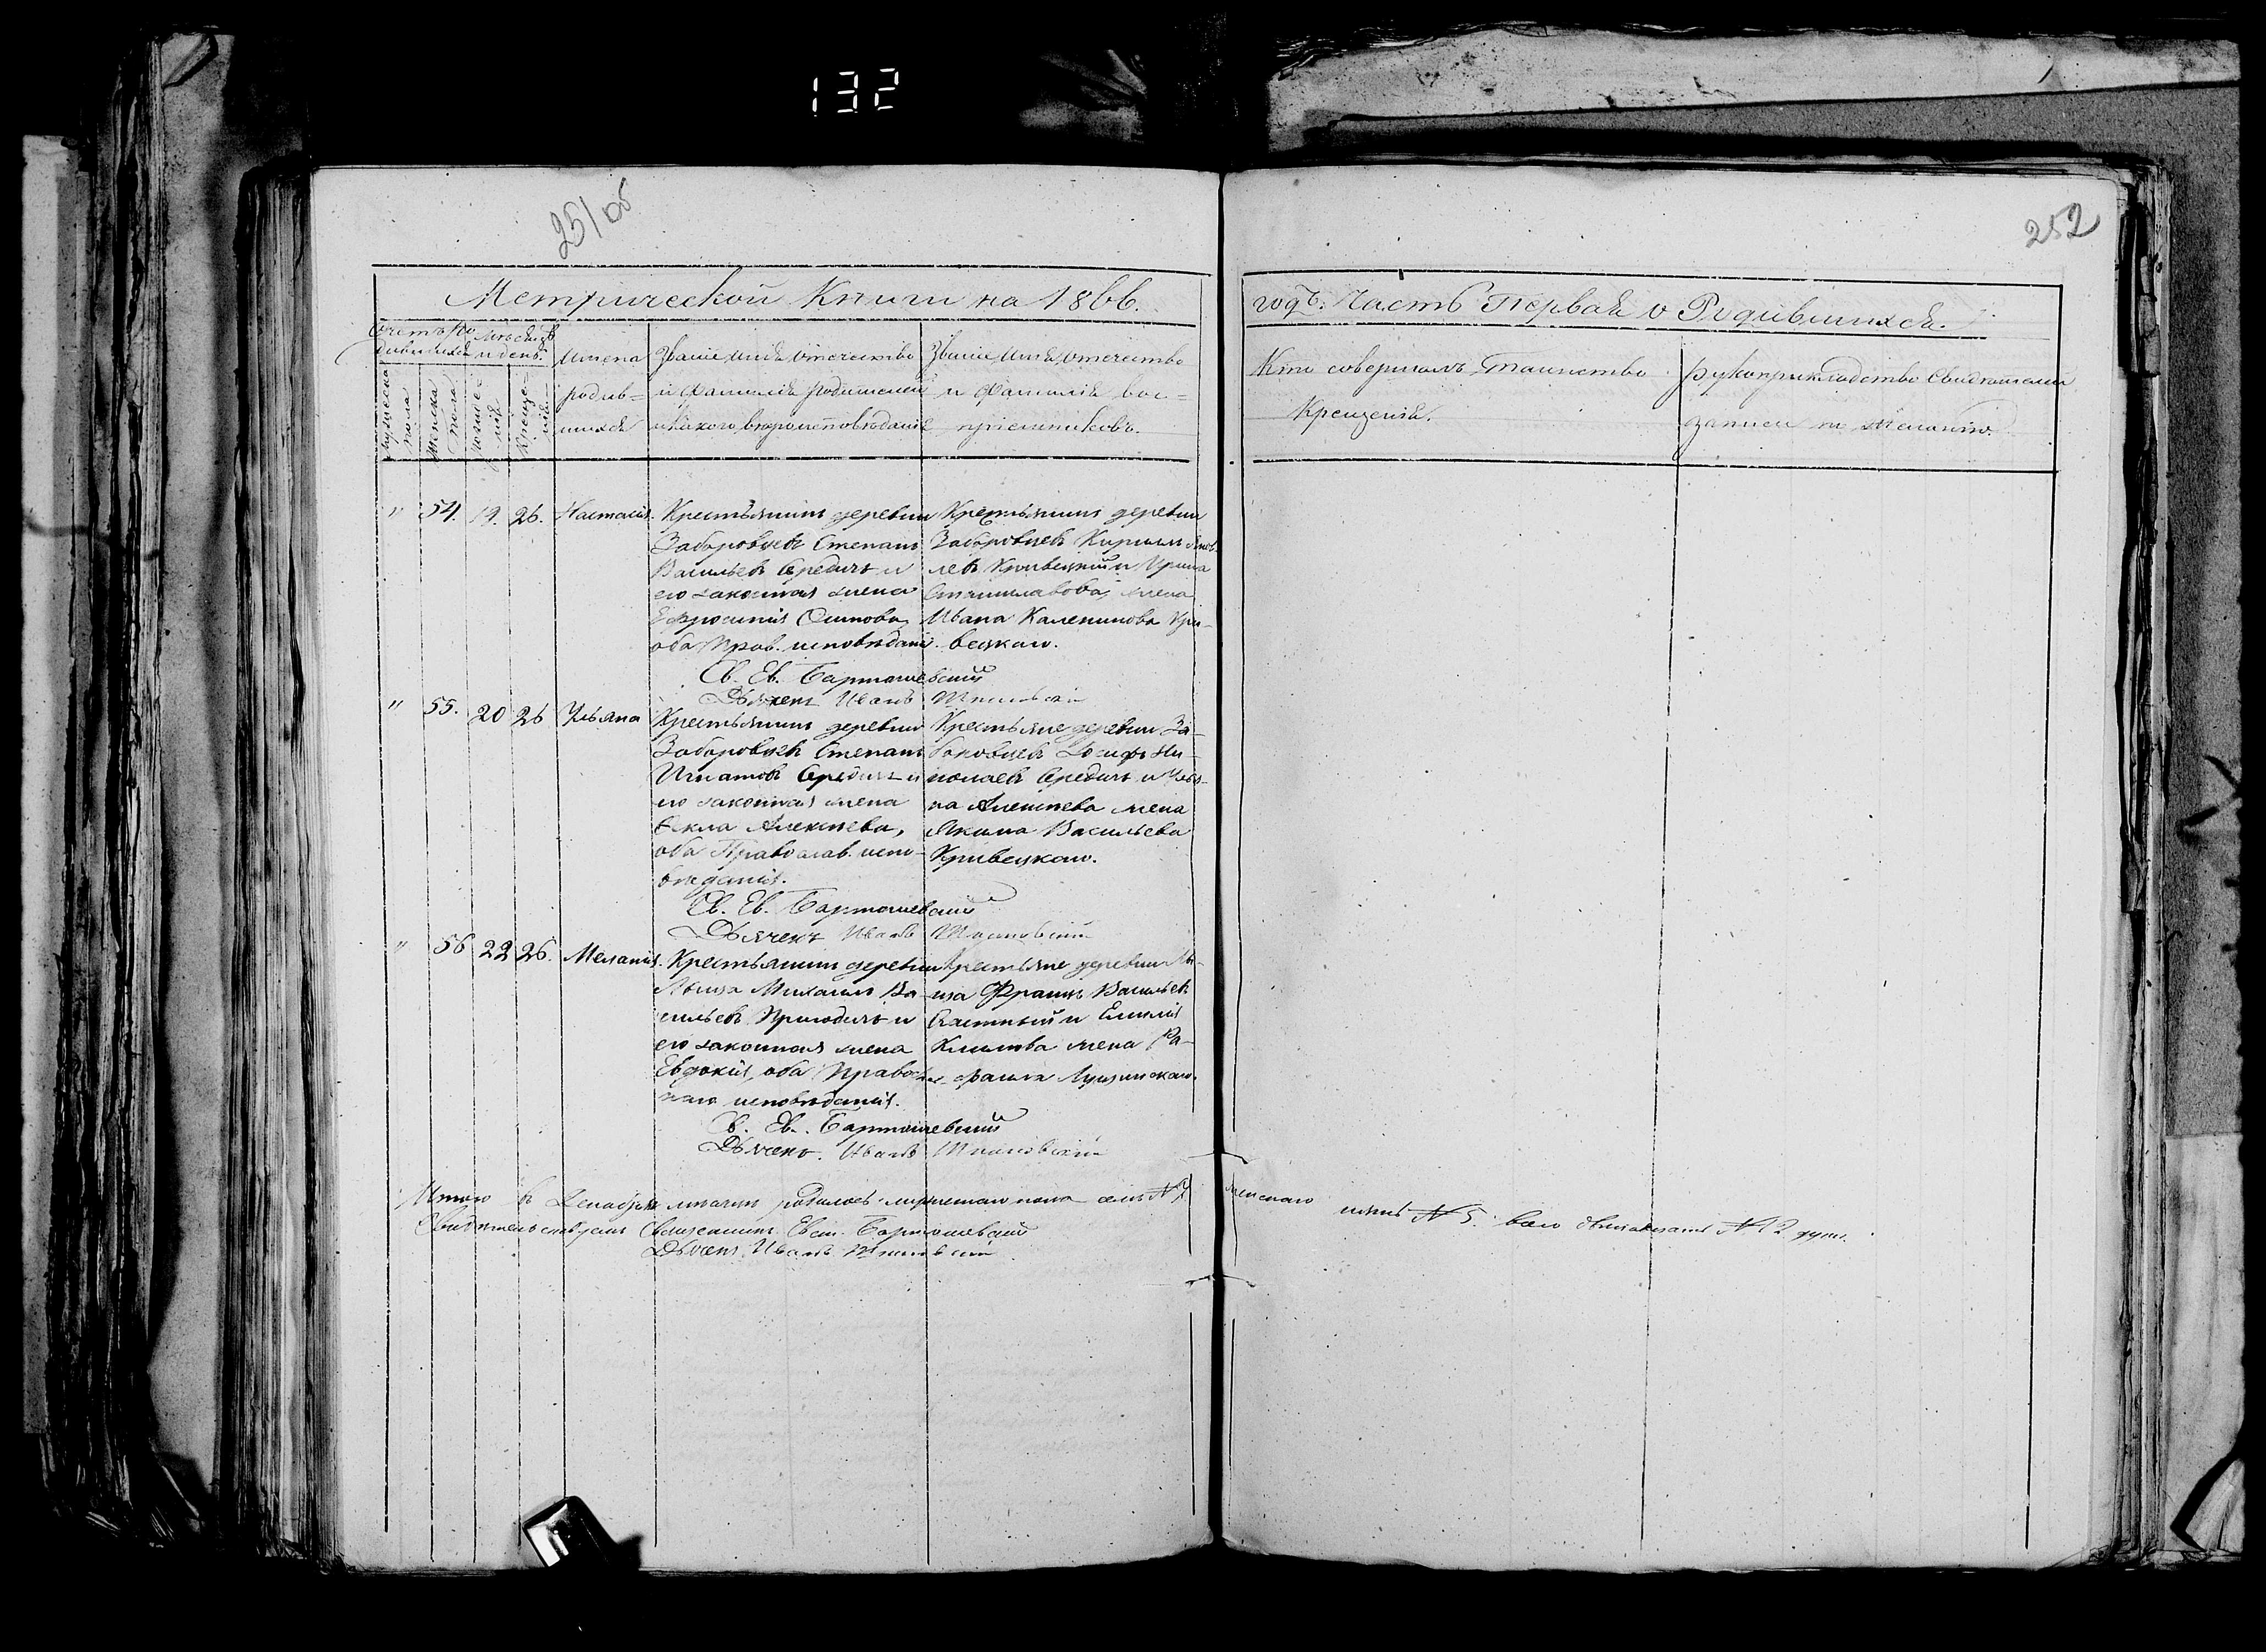 132
251об
252
Метрической Книги на 1866.
годъ. Часть Первая о Родившихся.
Счетъ ро-
дившихся
Мѣсяцъ
и день.
Мужеска
пола
Женска
пола
Рожде-
нія
Креще-
нія
Имена
родив-
шихся
Званіе имя отечество
и фамилія родителей
и какого вѣроисповѣданія
Званіе имя, отечество
и фамилія вос-
пріемниковъ.
Кто совершалъ Таинство
Крещенія.
Рукоприкладство Свидѣтелей
записи по желанію.
" 54. 19. 26. Наталія.
Крестьянинъ деревни
Заборовцевъ Степанъ
Васильевъ Средичъ и
его законная жена
Ефросинія Осипова,
оба Прав. исповѣданія.
Крестьянинъ деревни
Заборовцевъ Кириллъ Яков-
левъ Кривецкій и Ирина
Станиславова, жена
Ивана Каленикова Кри-
вецкаго.
Св. Ев. Бартошевскій
Дьячекъ Иванъ
" 55. 20 26 Ульяна
Крестьянинъ деревни
Заборовцевъ Степанъ
Игнатовъ Средичъ и
его законная жена
Фекла Алексѣева,
оба Православ. испо-
вѣданія.
Крестьяне деревни За-
боровцевъ Іосифъ Ни-
колаевъ Средичъ и Улья-
на Алексѣева жена
Якима Васильева
Кривецкаго.
Св. Ев. Бартошевскій
Дьячекъ Иванъ
" 56 22 26. Меланія.
Крестьянинъ деревни
Лыща Михаилъ Ва-
сильевъ Приходичъ и
его законная жена
Евдокія, оба Правосла-
наго исповѣданія.
Крестьяне деревни Лы-
ща Францъ Васильевъ
и Емилія
Климова жена Ра-
фаила Лущинскаго.
Св. Ев. Бартошевскій
Дьячекъ. Иванъ
Итого въ Декабрѣ мѣсяцѣ родилось мужескаго пола семь № 7 женскаго пять № 5. всего двѣнадцать № 12 душъ.
Свидѣтельствуемъ Священникъ Евст. Бартошевскій
Дьячекъ Иванъ